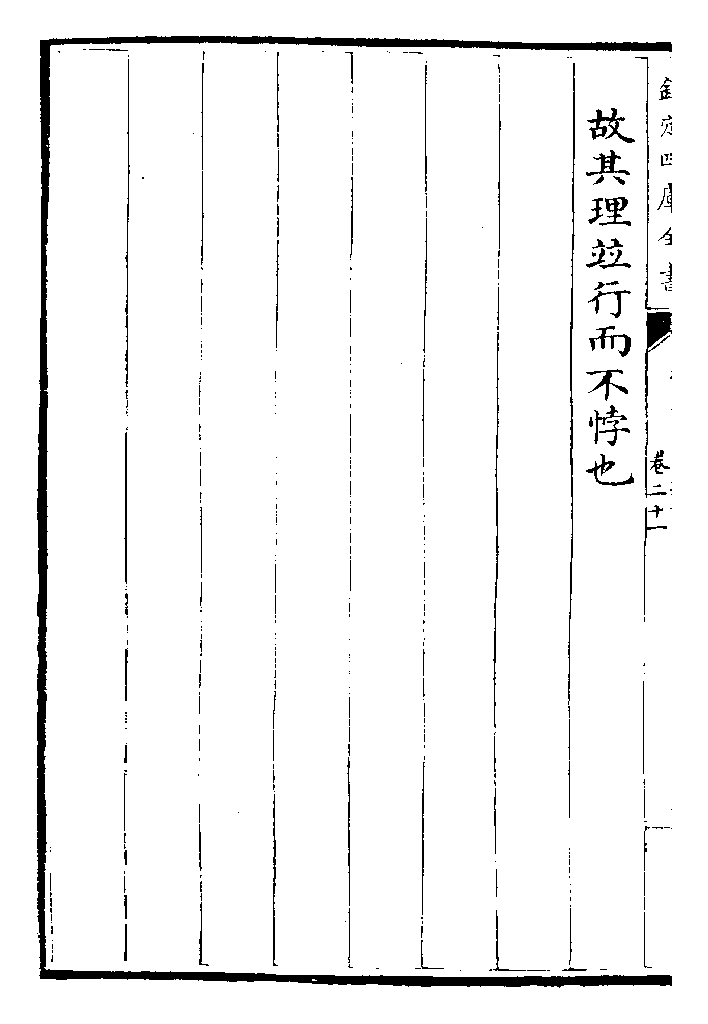 欽定四庫全書
卷二十一
故其理並行而不悖也